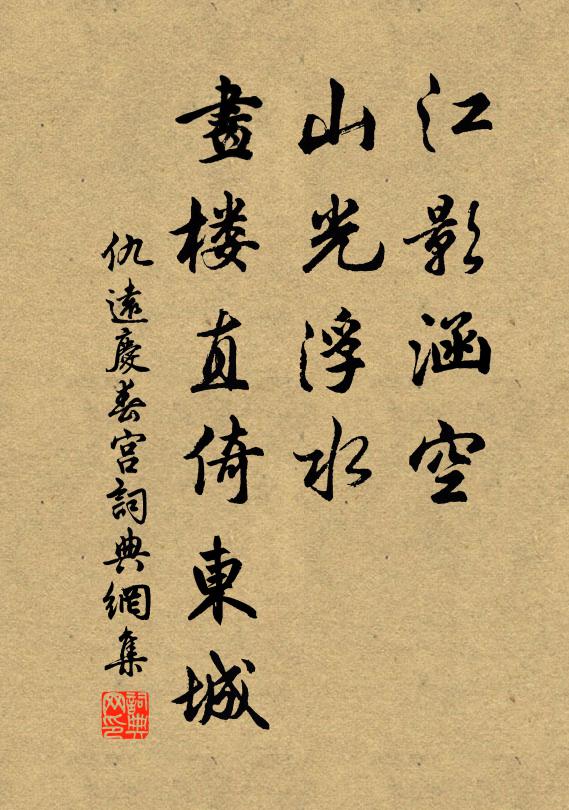 江影涵空
山光浮水
畫楼直倚東城
仇遠慶春宫詞典網集
詞典网印